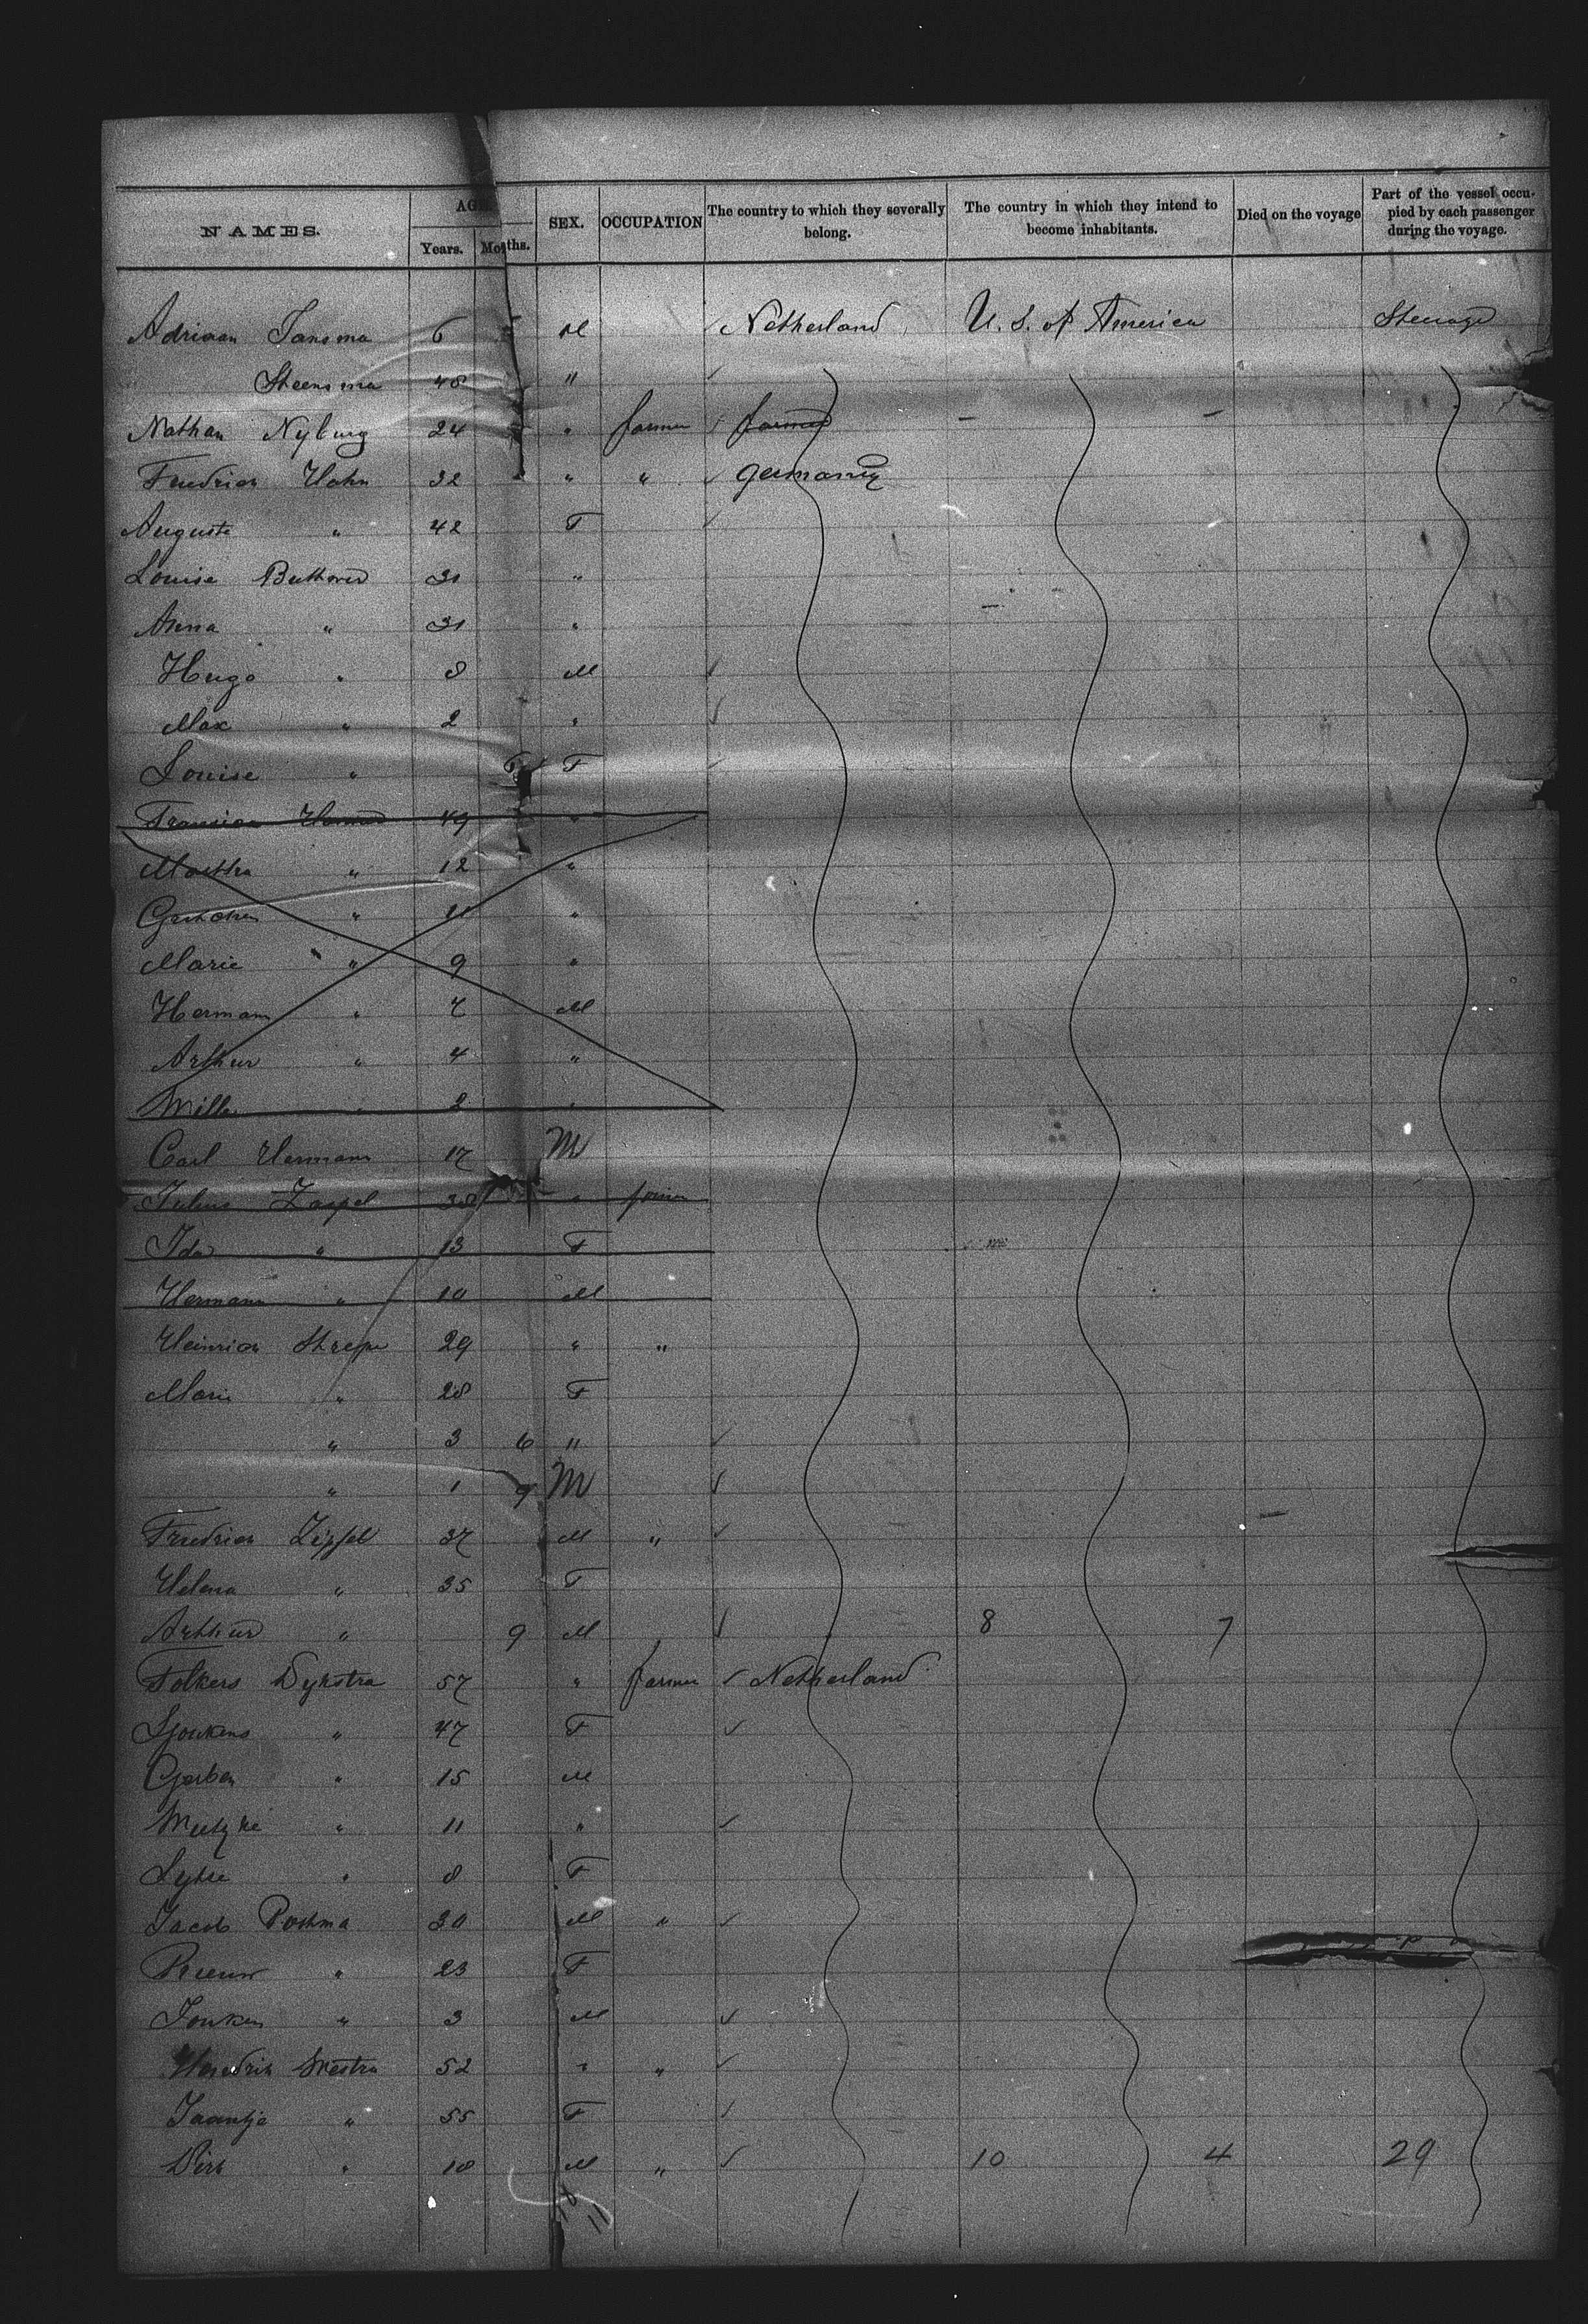 NAMES. AGE. SEX. OCCUPATION The country to which they severally belong. The country in which they intend to become inhabitants. Died on the voyage Part of the vessel occupied by each passenger during the voyage.
Years. Months.
Adriaan 6 M Netherland U. S. of America Steerage
Steensma 48 "
Nathan Nyburg 24 " farmer farmer
Friedrich Hahn 32 " " Germany
Auguste " 42 F
Louise 31 "
Anna " 31 "
Hugo " 8 M
Max " 2 "
Louise " F
49 "
Martha " 12 "
Gretchen " 11 "
Marie " 9 "
Hermann " 7 M
Arthur " 4 "
Willi " 2 "
Carl Hermann 17 M
Julius Zaspel 38 " farmer
Ida " 13 F
Hermann " 10 M
Heinrich 29 " "
Marie " 28 F
" 3 6 "
" 1 9 M
Friedrich Zipfel 37 M "
Helena " 35 F
Arthur " 9 M 8 7
Folkers Dykstra 57 " farmer Netherland
Sjoukens " 47 F
Gerben " 15 M
" 11 "
" 8 F
Jacob Postma 30 M "
" 23 F
Jouken " 3 M
Hendrik Westra 52 " "
Jaantje " 55 F
Dirk " 18 M " 10 4 29
18 11